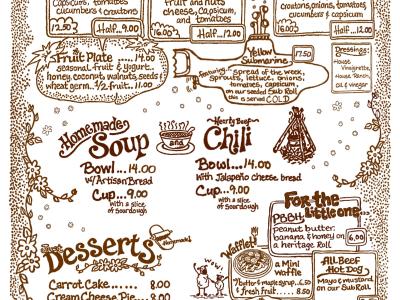 Capsicum, tomatoes
cucumbers & croutons
12.50
Half...9.00
fruit and nuts
cheese, Capsicum,
and tomatoes
16.00
Half...12.00
croutons, onions, tomatoes,
cucumbers & capsicum
16.00
Half...12.00
Fruit Plate .....14.00
seasonal fruit & yogurt.
honey, coconut, walnuts, seeds &
wheat germ. 1/2 fruit..11.00
Yellow
Submarine
17.50
featuring:
Spread of the week,
Sprouts, lettuce, onions,
tomatoes, capsicum,
on our seeded Sub Roll
this is served COLD
Dressings:
House
Vinaigrette,
House Ranch,
Oil & vinegar
Homemade
Soup
Bowl...14.00
w/ Artisan Bread
Cup...9.00
with a slice
of sourdough
and
Hearty Beef
Chili
Bowl...14.00
with Jalapeño cheese bread
Cup...9.00
with a slice
of sourdough
For the
little one...
PBBH.
peanut butter,
banana & honey on
a heritage Roll
6.00
Desserts
Homemade!
Carrot Cake...... 8.00
Cream Cheese Pie.... 8.00
Waffles!
a Mini
Waffle
7 butter & maple syrup..6.50
fresh fruit.... 8.50
All Beef
Hot Dog
Mayo & mustard
on our Sub Roll